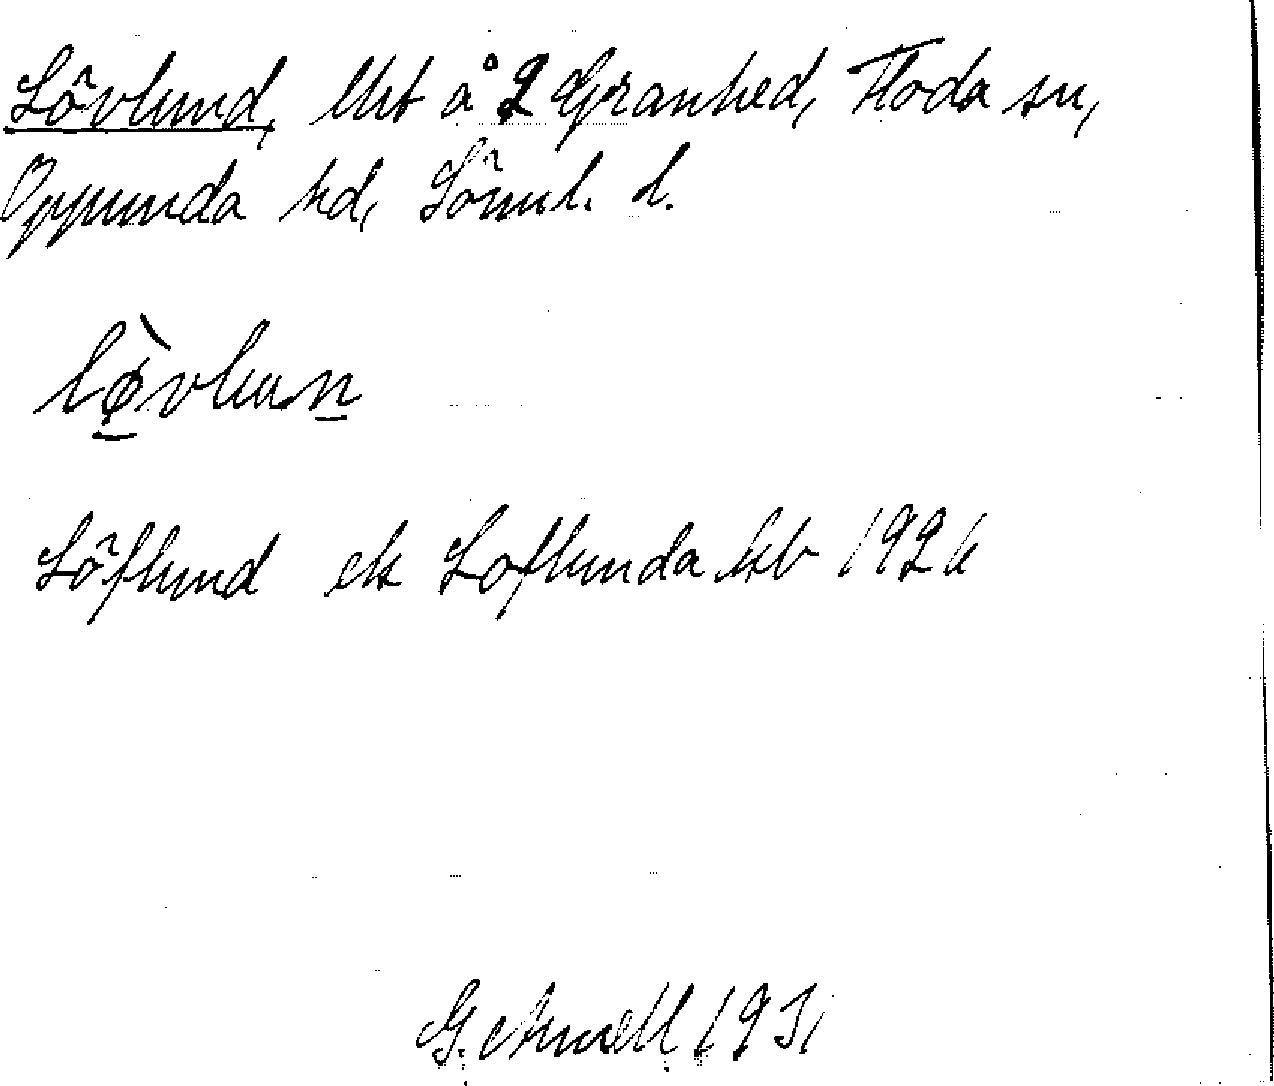 Lövlund, lht å 2 Granhed, Floda sn,
Oppunda hd, Söml. l.
lø̀vlun
Löflund el Löflunda kb 1926
G. Arnell 1931